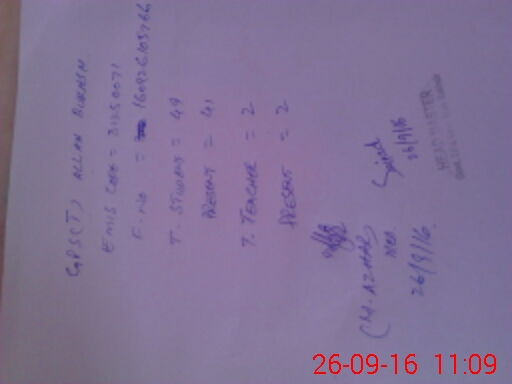 GPS(T) ALLAH BUKHSH
EMIS CODE = 31250071
F. NO = 160926105966
T. STUDENT = 49
PRESENT = 41
T. TEACHER = 2
PRESENT = 2
26/9/16
HEADMASTER
(M. AZHAR)
26/9/16.
26-09-16 11:09